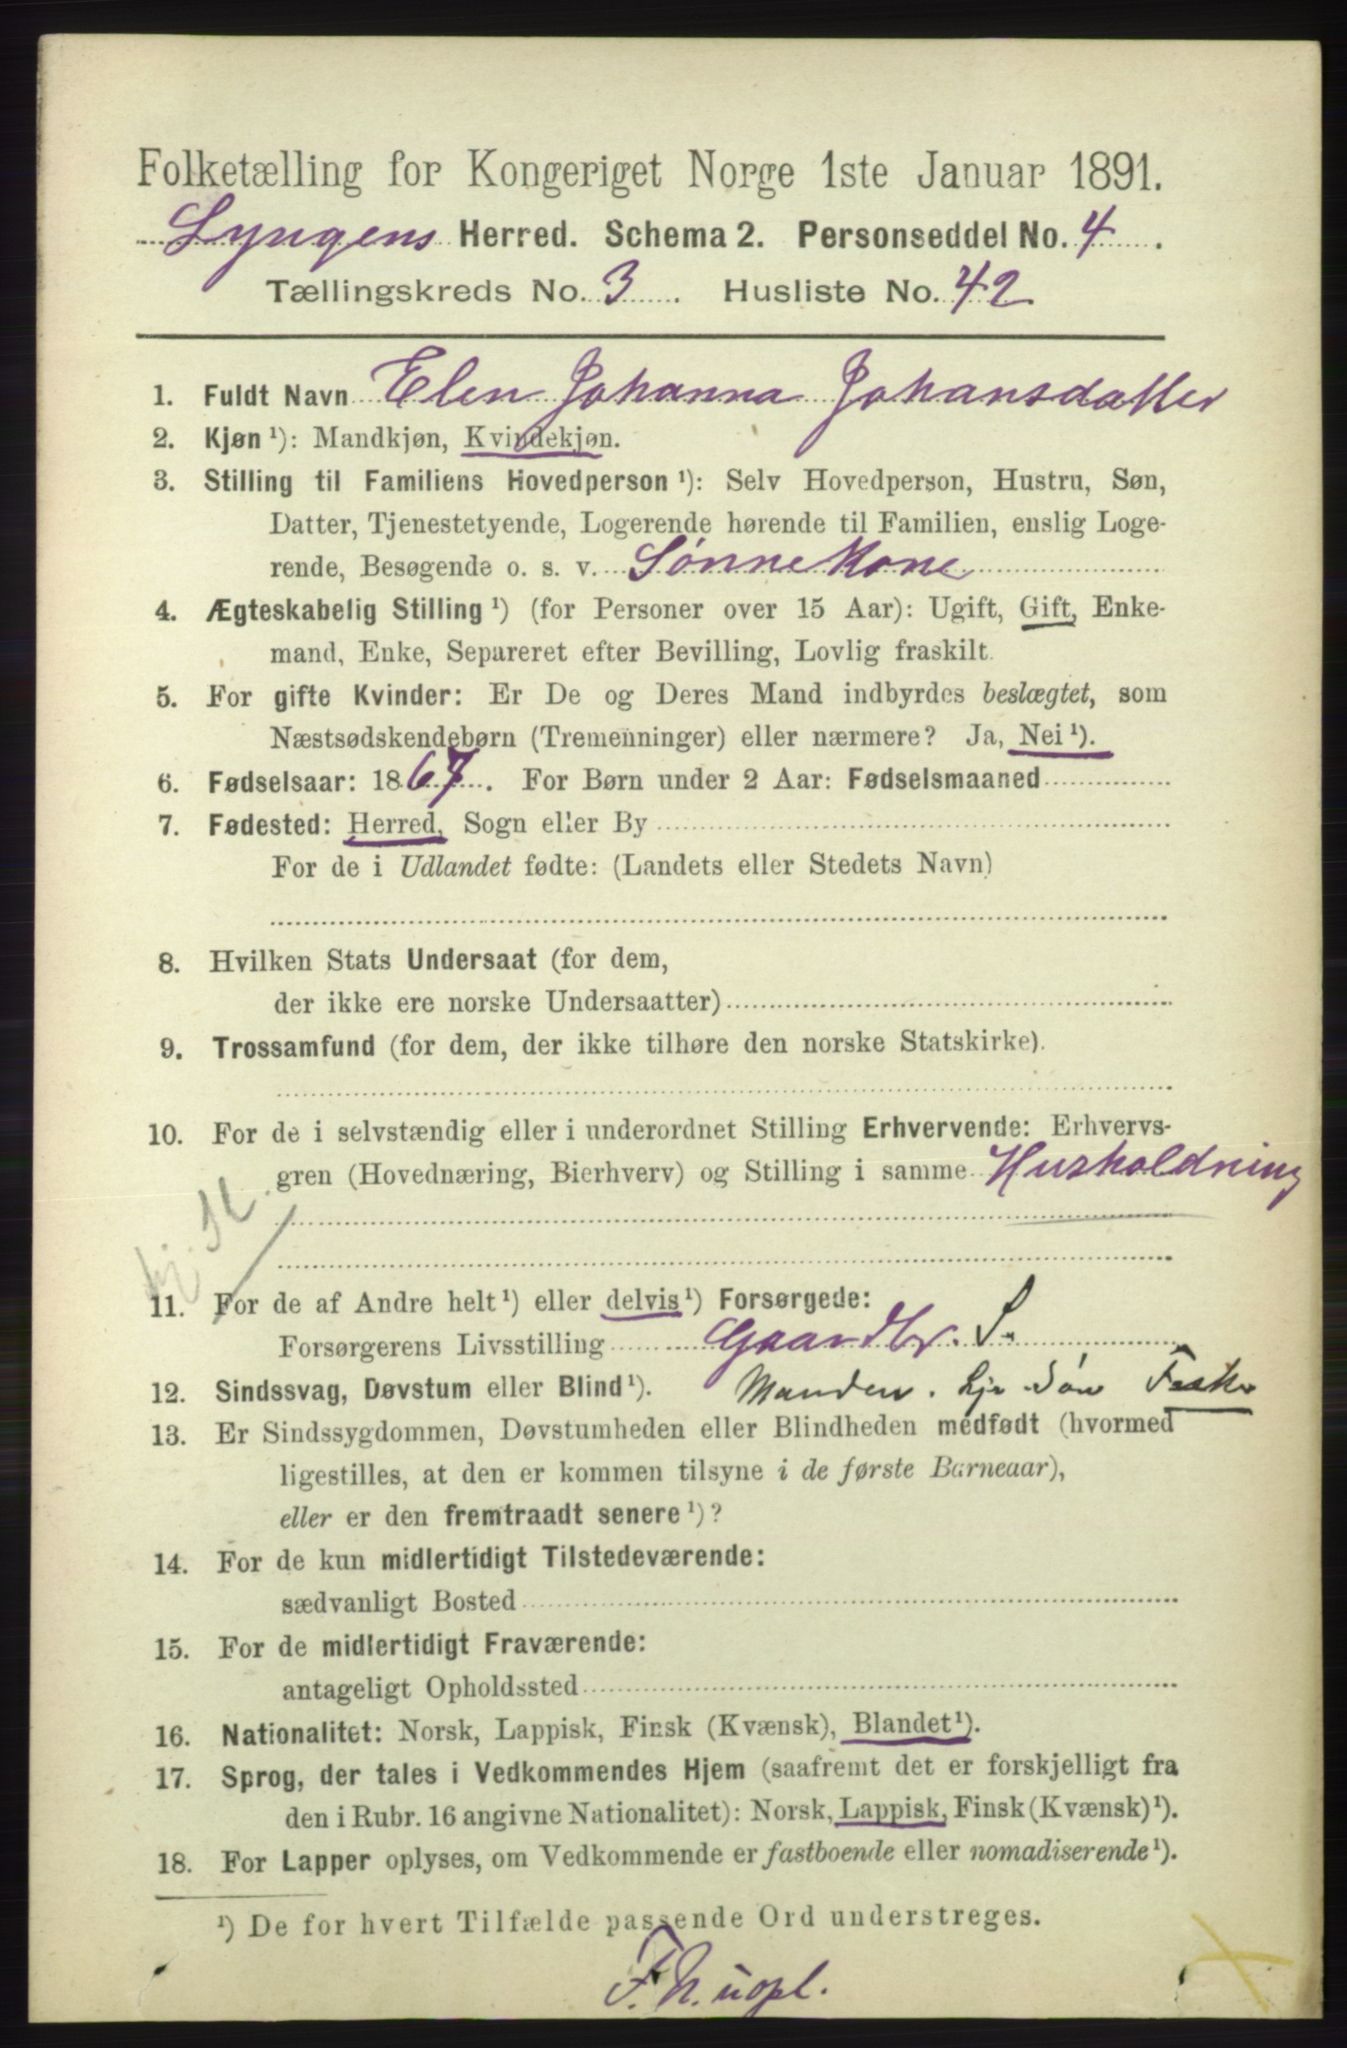 Folketælling for Kongeriget Norge 1ste Januar 1891.
Lyngens Herred. Schema 2. Personseddel No. 4.
Tællingskreds No. 3. Husliste No. 42
1. Fuldt Navn Elen Johanna Johansdatter
2. Kjøn ¹): Mandkjøn, Kvindekjøn.
3. Stilling til Familiens Hovedperson ¹): Selv Hovedperson, Hustru, Søn,
Datter, Tjenestetyende, Logerende hørende til Familien, enslig Loge-
rende, Besøgende o. s. v. Sønnekone
4. Ægteskabelig Stilling ¹) (for Personer over 15 Aar): Ugift, Gift, Enke-
mand, Enke, Separeret efter Bevilling, Lovlig fraskilt.
5. For gifte Kvinder: Er De og Deres Mand indbyrdes beslægtet, som
Næstsødskendebørn (Tremenninger) eller nærmere? Ja, Nei ¹).
6. Fødselsaar: 1867. For Børn under 2 Aar: Fødselsmaaned
7. Fødested: Herred, Sogn eller By
For de i Udlandet fødte: (Landets eller Stedets Navn)
8. Hvilken Stats Undersaat (for dem,
der ikke ere norske Undersaatter)
9. Trossamfund (for dem, der ikke tilhøre den norske Statskirke).
10. For de i selvstændig eller i underordnet Stilling Erhvervende: Erhvervs-
gren (Hovednæring, Bierhverv) og Stilling i samme Husholdning
11. For de af Andre helt ¹) eller delvis ¹) Forsørgede:
Forsørgerens Livsstilling Gaardbr. S.
12. Sindssvag, Døvstum eller Blind ¹). Manden. hj. Søn
13. Er Sindssygdommen, Døvstumheden eller Blindheden medfødt (hvormed
ligestilles, at den er kommen tilsyne i de første Barneaar),
eller er den fremtraadt senere ¹)?
14. For de kun midlertidigt Tilstedeværende:
sædvanligt Bosted
15. For de midlertidigt Fraværende:
antageligt Opholdssted
16. Nationalitet: Norsk, Lappisk, Finsk (Kvænsk), Blandet ¹).
17. Sprog, der tales i Vedkommendes Hjem (saafremt det er forskjelligt fra
den i Rubr. 16 angivne Nationalitet): Norsk, Lappisk, Finsk (Kvænsk) ¹).
18. For Lapper oplyses, om Vedkommende er fastboende eller nomadiserende ¹).
¹) De for hvert Tilfælde passende Ord understreges.
F. N. uopl.